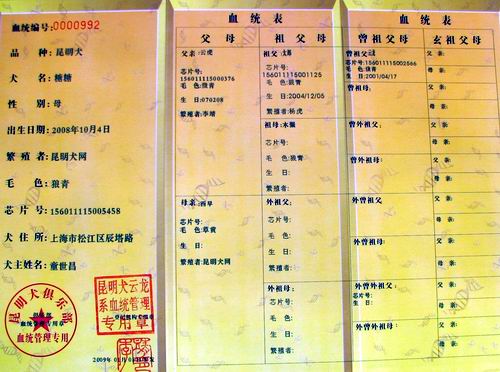 血统编号:0000992
品 种:昆明犬
犬 名:糖糖
性 别:母
出生日期:2008年10月4日
繁殖者:昆明犬网
毛 色:狼青
芯片号:156011115005458
犬住所:上海市松江区辰塔路
犬主姓名:童世昌
昆明犬俱乐部
血统管理专用
昆明犬云龙
系血统管理
专用章
血统表
父母
祖父母
父亲:云虎
芯片号:
156011115000376
毛 色:狼青
生 日:070208
繁殖者:李靖
母亲:西早
芯片号:
毛 色:草黄
生 日:
繁殖者:昆明犬网
祖父:
芯片号:
156011115001125
毛 色:狼青
生 日:2004/12/05
繁殖者:杨虎
祖母:木
芯片号:
毛 色:狼青
生 日:
繁殖者:
外祖父:
芯片号:
毛 色:
生 日:
繁殖者:
外祖母:
芯片号:
毛 色:
生 日:
繁殖者:
血统表
曾祖父母
玄祖父母
曾祖父:
芯片号:156011115002566
毛 色:狼青
生 日:2001/04/17
曾祖母:
曾外祖父:
曾外祖母:
外曾祖父:
外曾祖母:
外曾外祖父:
芯片号:
毛 色:
生 日:
外曾外祖母:
父亲:
母亲:
父亲:
母亲:
父亲:
母亲:
父亲:
母亲:
父亲:
母亲:
父亲:
母亲:
父亲:
母亲:
父亲:
母亲: